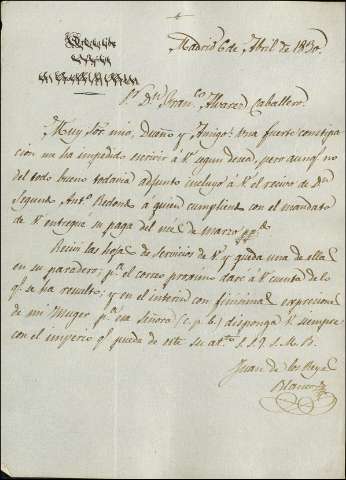 Madrid 6 de Abril de 1830.
Sr. Dn. Franco. Alvarez Caballero.
Muy Sor. mio, Dueño y Amigo: Una fuerte constipa
cion me ha impedido escrivir á V. segun devia, pero aunq. no
del todo bueno todavia adjunto incluyo á V. el recivo de Dn.
Segundo Anto. Redond á quien cumpliend con el mandato
de V. entregué su paga del mes de marzo
Recivi las hojas de servicios de V. y queda una de ellas
en su paradero; pa. el correo proximo daré á V. cuenta de lo
q. se ha resuelto; y en el interin con finisimas expresiones
de mi Muger pa. esa Señora (c. p. b.) disponga V. siempre
con el imperio q. puede de este su ato. S. S. Q. S. M. B.
Juan de los Reyes
Blanco